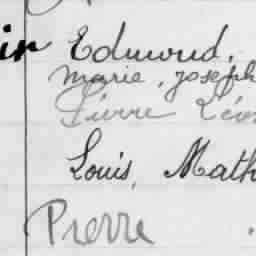 ir Edmond.
Marie, Joseph
Pierre Léon
Louis, Math
Pierre